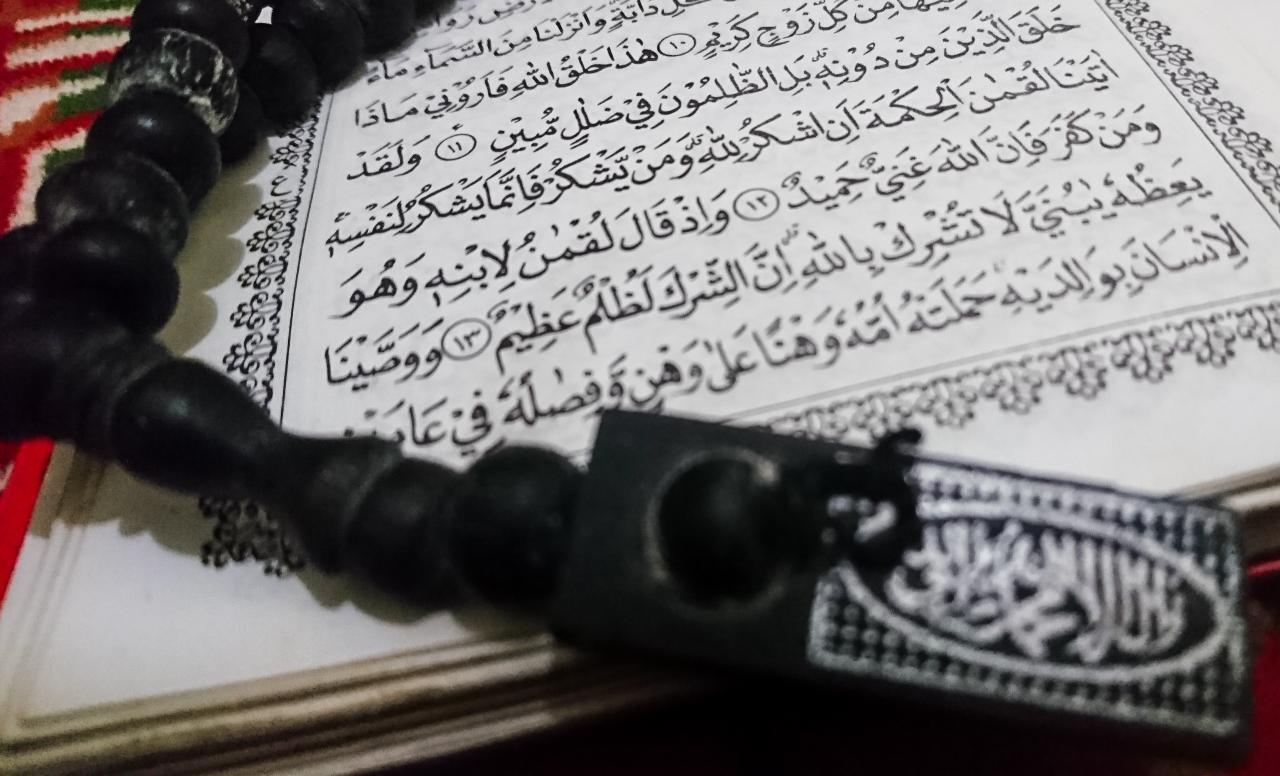 دَآبَّةٍ وَاَنْزَلْنَا مِنَ السَّمَآءِ مَآءً
فِيْهَا مِنْ كُلِّ زَوْجٍ كَرِيْمٍ ۝۱۰ هٰذَا خَلْقُ اللّٰهِ فَاَرُوْنِيْ مَاذَا
خَلَقَ الَّذِيْنَ مِنْ دُوْنِهٖ ۗ بَلِ الظّٰلِمُوْنَ فِيْ ضَلٰلٍ مُّبِيْنٍ ۝۱۱ وَلَقَدْ
اٰتَيْنَا لُقْمٰنَ الْحِكْمَةَ اَنِ اشْكُرْ لِلّٰهِ ۗ وَمَنْ يَّشْكُرْ فَاِنَّمَا يَشْكُرُ لِنَفْسِهٖ ۚ
وَمَنْ كَفَرَ فَاِنَّ اللّٰهَ غَنِيٌّ حَمِيْدٌ ۝۱۲ وَاِذْ قَالَ لُقْمٰنُ لِابْنِهٖ وَهُوَ
يَعِظُهٗ يٰبُنَيَّ لَا تُشْرِكْ بِاللّٰهِ ۗ اِنَّ الشِّرْكَ لَظُلْمٌ عَظِيْمٌ ۝۱۳ وَوَصَّيْنَا
الْاِنْسَانَ بِوَالِدَيْهِ ۚ حَمَلَتْهُ اُمُّهٗ وَهْنًا عَلٰى وَهْنٍ وَّفِصٰلُهٗ فِيْ عَامَيْنِ